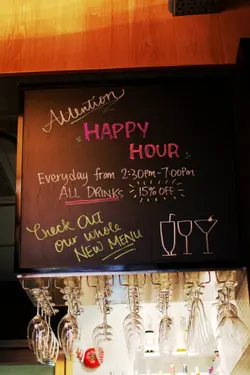 Attention
HAPPY
HOUR
Everyday from 2:30pm-7:00pm
ALL DRINKS 15% OFF
Check OUT
our whole
NEW MENU